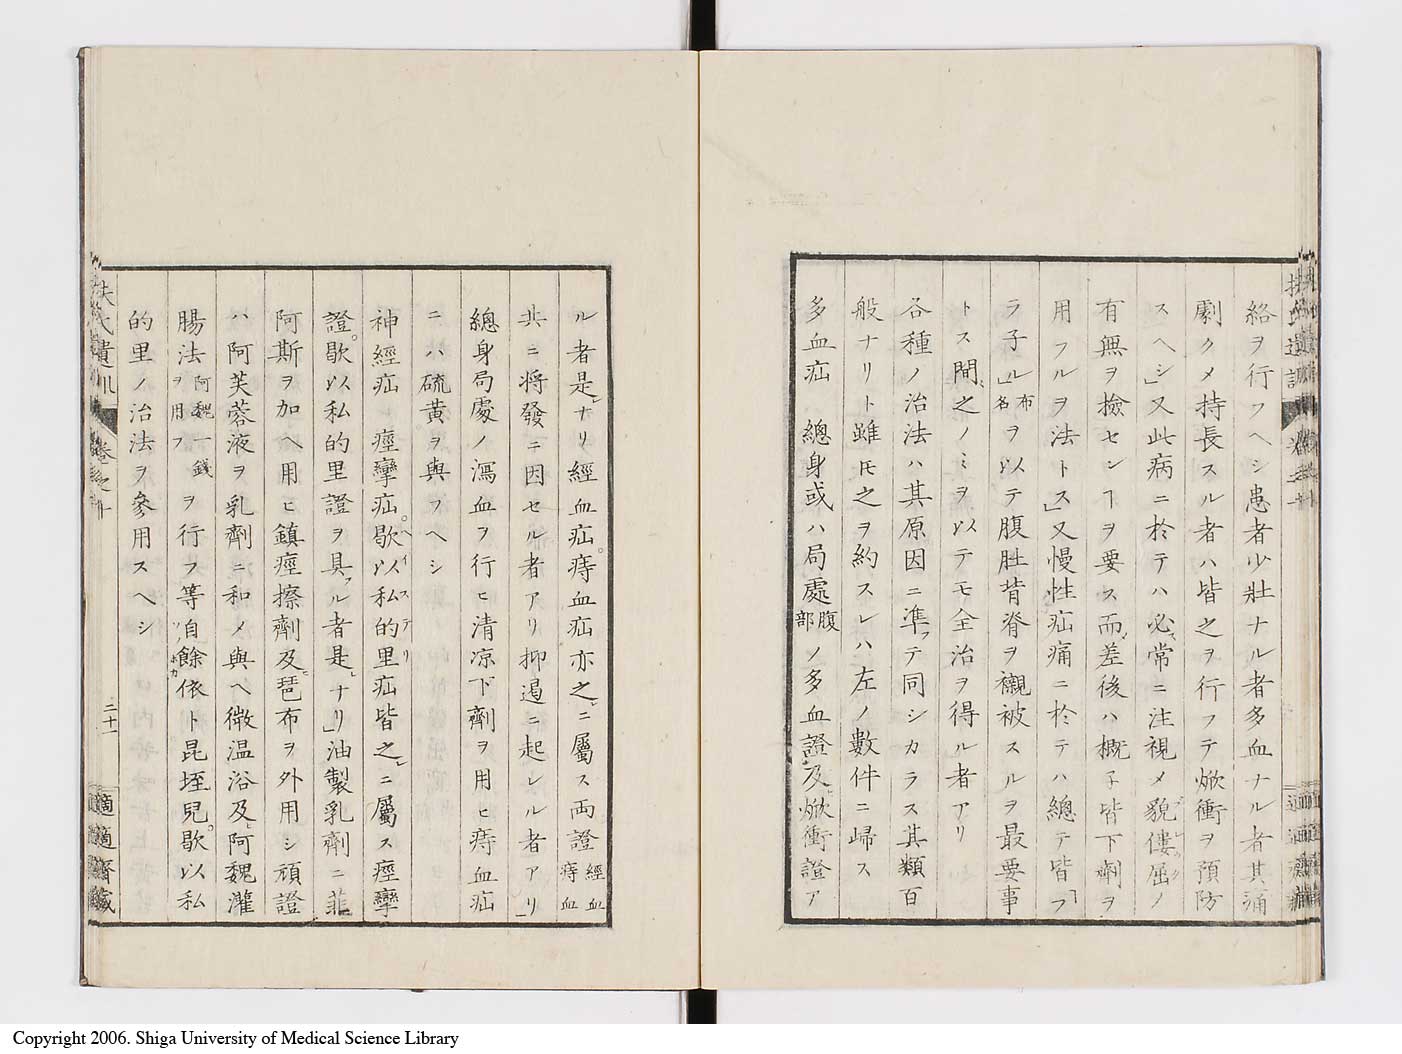 絡ヲ行フヘシ患者少壯ナル者多血ナル者其痛
劇クメ持長スル者ハ皆之ヲ行フテ焮衝ヲ預防
スヘシ」又此病ニ於テハ必ス常ニ注視メ貌僂屈ノ
有無ヲ撿セン𪜈ヲ要ス而差後ハ概子皆下劑ヲ
用フルヲ法トス」又慢性疝痛ニ於テハ總テ皆フ
ラ子ル」布名ヲ以テ腹肚背脊ヲ襯被スルヲ最要事
トス間之ノミヲ以テモ全治ヲ得ル者アリ
各種ノ治法ハ其原因ニ準テ同シカラス其類百
般ナリト雖𪜈之ヲ約スレハ左ノ數件ニ歸ス
多血疝 總身或ハ局處腹部ノ多血證及焮衝證ア
ル者是ナリ經血疝痔血疝亦之ニ屬ス両證經血痔血
共ニ将發ニ因セル者アリ抑遏ニ起レル者アリ」
總身局處ノ瀉血ヲ行ヒ清凉下劑ヲ用ヒ痔血疝
ニハ硫黄ヲ與フヘシ
神經疝 痙攣疝歇以私的里疝皆之ニ屬ス痙攣
證歇以私的里證ヲ具ル者是ナリ」油製乳劑ニ菲
阿斯ヲ加ヘ用ヒ鎮痙擦劑及琶布ヲ外用シ頑證
ハ阿芙蓉液ヲ乳劑ニ和メ與ヘ微温浴及阿魏灌
腸法阿魏一錢ヲ用フヲ行フ等自餘依卜昆垤兒歇以私
的里ノ治法ヲ參用スヘシ
扶氏遺訓
巻之十
二十一
適適齋藏